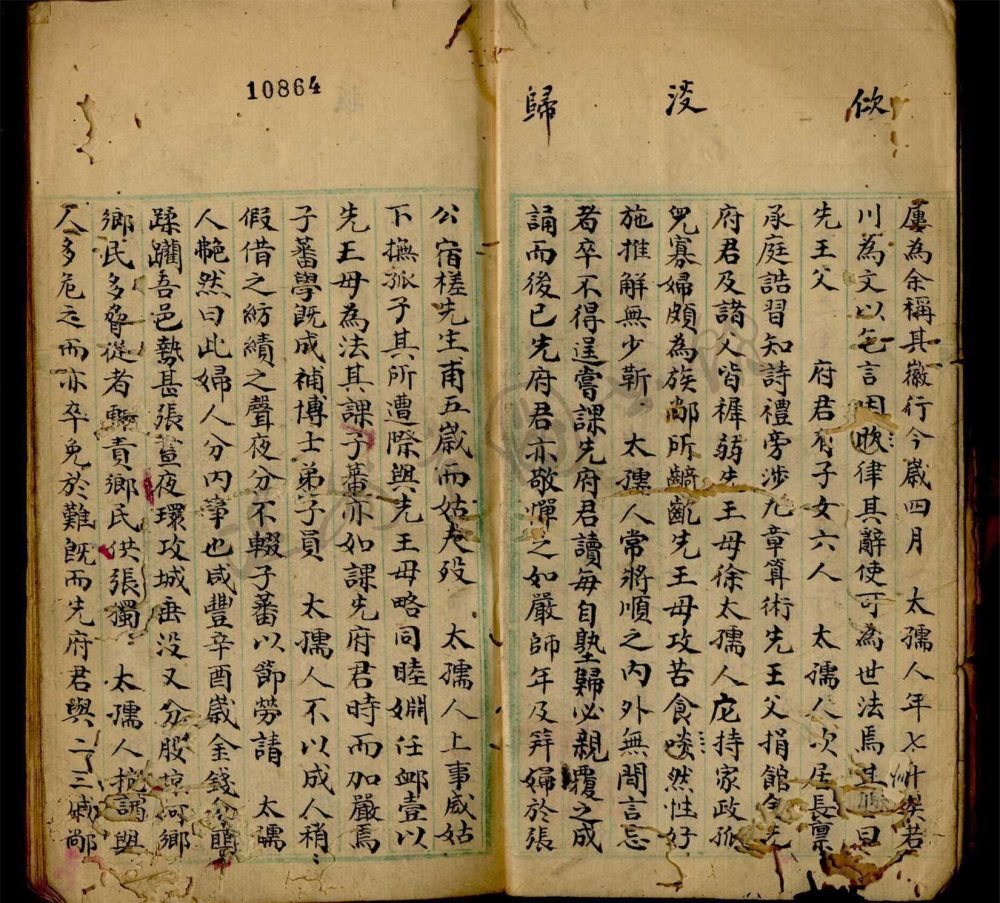 佽 淩 歸
屢為余稱其徽行今歲四月 太孺人年七十矣若
川為文以乞言因敘律其辭使可為世法焉其曰
先王父 府君有子女六人 太孺人次居長稟
承庭誥習知詩禮旁涉九章算術先王父捐館先
府君及諸父皆穉弱先王母徐太孺人庀持家政孤
兒寡婦頗為族鄰所齮齕先王母攻苦食啖然性好
施推解無少靳 太孺人常將順之內外無間言忘
者卒不得逞嘗課先府君讀每自塾歸必親覆之成
誦而後已先府君亦敬憚之如嚴師年及笄婦於張
10864
公宿槎先生甫五歲而姑夫歿 太孺人上事威姑
下撫孤子其所遭際與先王母略同睦婣任卹壹以
先王母為法其課子蕃亦如課先府君時而加嚴焉
子蕃學既成補博士弟子員 太孺人不以成人稍
假借之紡績之聲夜分不輟子蕃以節勞請 太孺
人艴然曰此婦人分內事也咸豐辛酉歲金錢會匪
蹂躪吾邑勢甚張晝夜環攻城垂沒又分股掠河鄉
鄉民多脅從者輒責鄉民供張獨 太孺人抗詞與
人多危之而亦卒免於難既而先府君與二三戚鄰